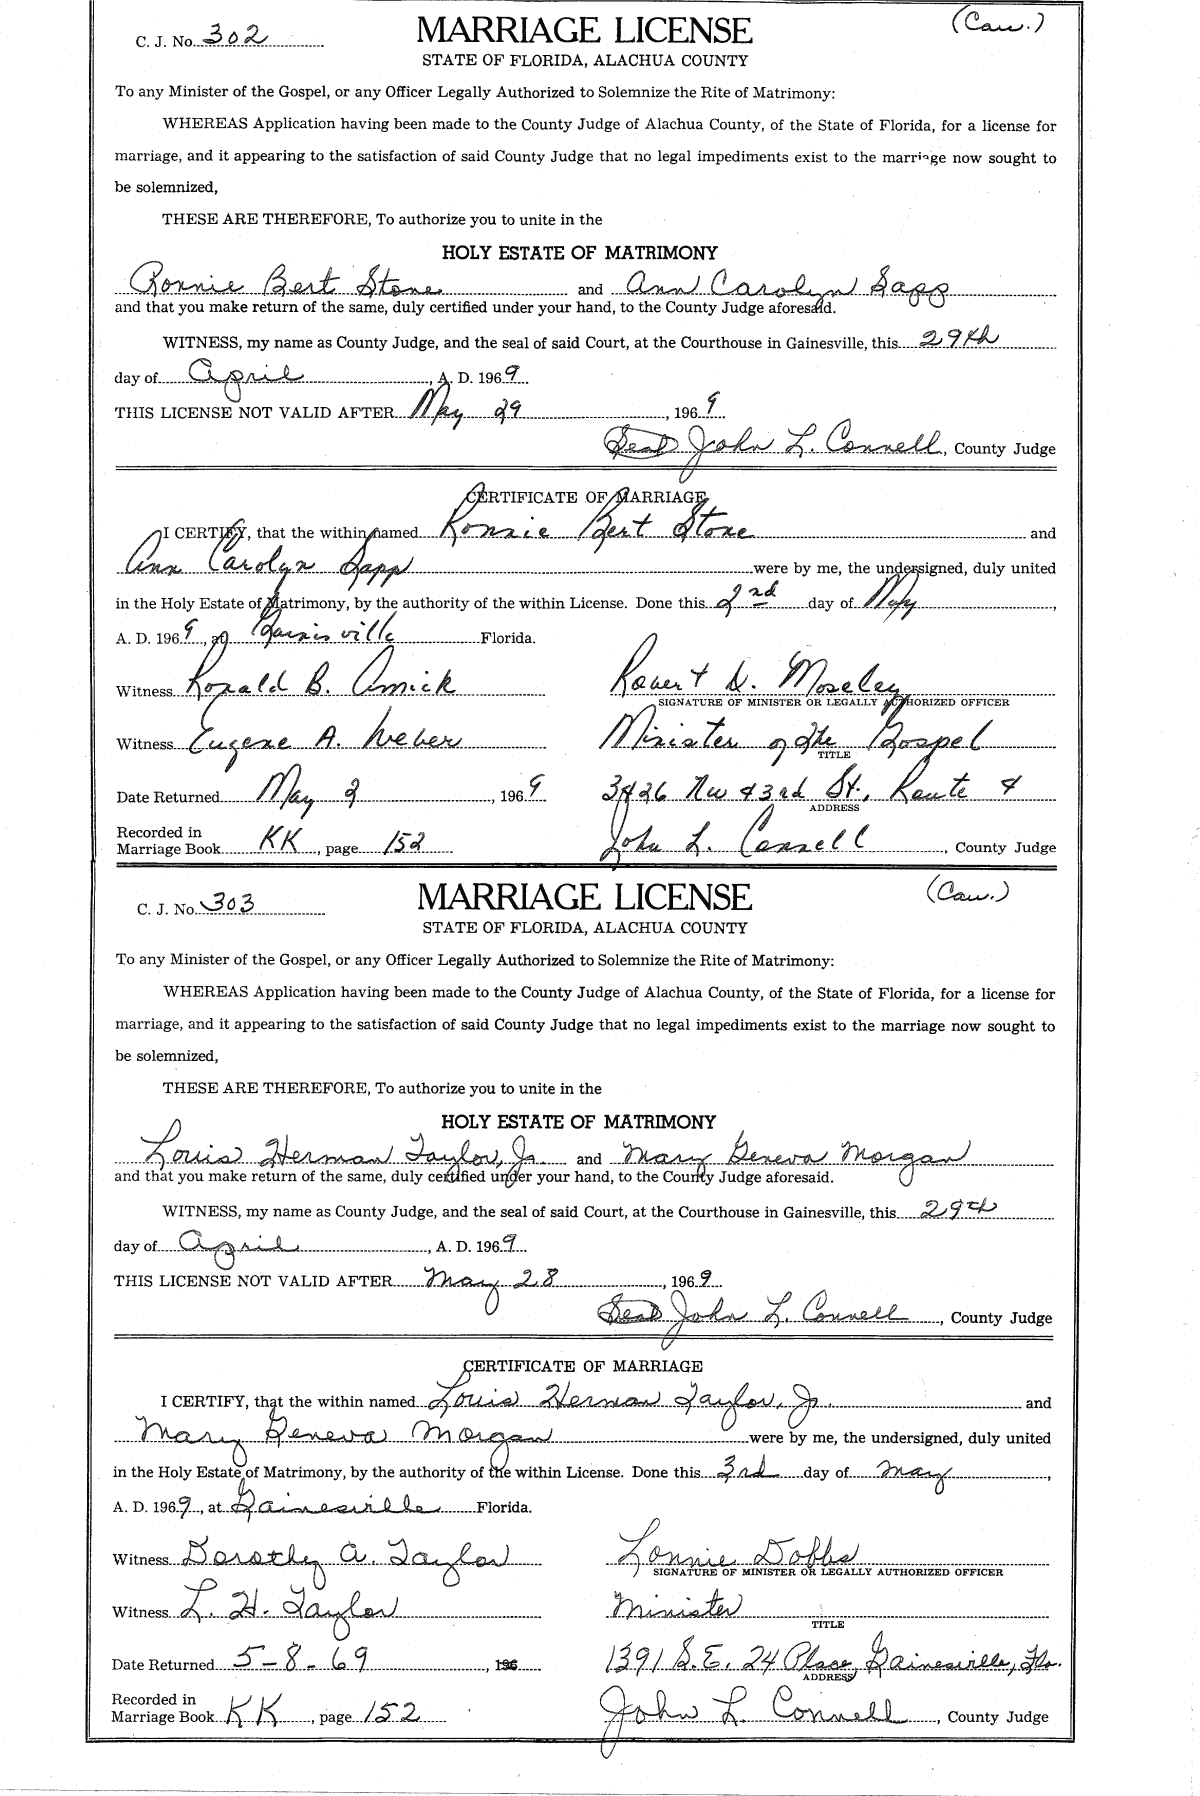 C. J. No. 302 MARRIAGE LICENSE (Cau.)
STATE OF FLORIDA, ALACHUA COUNTY
To any Minister of the Gospel, or any Officer Legally Authorized to Solemnize the Rite of Matrimony:
WHEREAS Application having been made to the County Judge of Alachua County, of the State of Florida, for a license for
marriage, and it appearing to the satisfaction of said County Judge that no legal impediments exist to the marriage now sought to
be solemnized,
THESE ARE THEREFORE, To authorize you to unite in the
HOLY ESTATE OF MATRIMONY
Ronnie Bert Stone and Ann Carolyn Sapp
and that you make return of the same, duly certified under your hand, to the County Judge aforesaid.
WITNESS, my name as County Judge, and the seal of said Court, at the Courthouse in Gainesville, this 29th
day of April, A. D. 1969
THIS LICENSE NOT VALID AFTER May 29, 1969
Seal John L. Connell, County Judge
CERTIFICATE OF MARRIAGE
I CERTIFY, that the within named Ronnie Bert Stone and
Ann Carolyn Sapp were by me, the undersigned, duly united
in the Holy Estate of Matrimony, by the authority of the within License. Done this 2nd day of May,
A. D. 1969, at Gainisville Florida.
Witness Ronald B. Amick Robert D. Moseley
SIGNATURE OF MINISTER OR LEGALLY AUTHORIZED OFFICER
Witness Eugene A. Weber Minister of the Gospel
TITLE
Date Returned May 2, 1969 3426 NW 43rd St., Route 4
ADDRESS
Recorded in
Marriage Book KK, page 152 John L. Connell, County Judge
C. J. No. 303 MARRIAGE LICENSE (Cau.)
STATE OF FLORIDA, ALACHUA COUNTY
To any Minister of the Gospel, or any Officer Legally Authorized to Solemnize the Rite of Matrimony:
WHEREAS Application having been made to the County Judge of Alachua County, of the State of Florida, for a license for
marriage, and it appearing to the satisfaction of said County Judge that no legal impediments exist to the marriage now sought to
be solemnized,
THESE ARE THEREFORE, To authorize you to unite in the
HOLY ESTATE OF MATRIMONY
Louis Herman Taylor, Jr. and Mary Geneva Morgan
and that you make return of the same, duly certified under your hand, to the County Judge aforesaid.
WITNESS, my name as County Judge, and the seal of said Court, at the Courthouse in Gainesville, this 29th
day of April, A. D. 1969
THIS LICENSE NOT VALID AFTER May 28, 1969
Seal John L. Connell, County Judge
CERTIFICATE OF MARRIAGE
I CERTIFY, that the within named Louis Herman Taylor, Jr. and
Mary Geneva Morgan were by me, the undersigned, duly united
in the Holy Estate of Matrimony, by the authority of the within License. Done this 3rd day of May,
A. D. 1969, at Gainesville Florida.
Witness Dorothy A. Taylor Lonnie Dobbs
SIGNATURE OF MINISTER OR LEGALLY AUTHORIZED OFFICER
Witness L. H. Taylor Minister
TITLE
Date Returned 5-8-69, 196 1391 S.E. 24 Place, Gainesville, Fla.
ADDRESS
Recorded in
Marriage Book KK, page 152 John L. Connell, County Judge